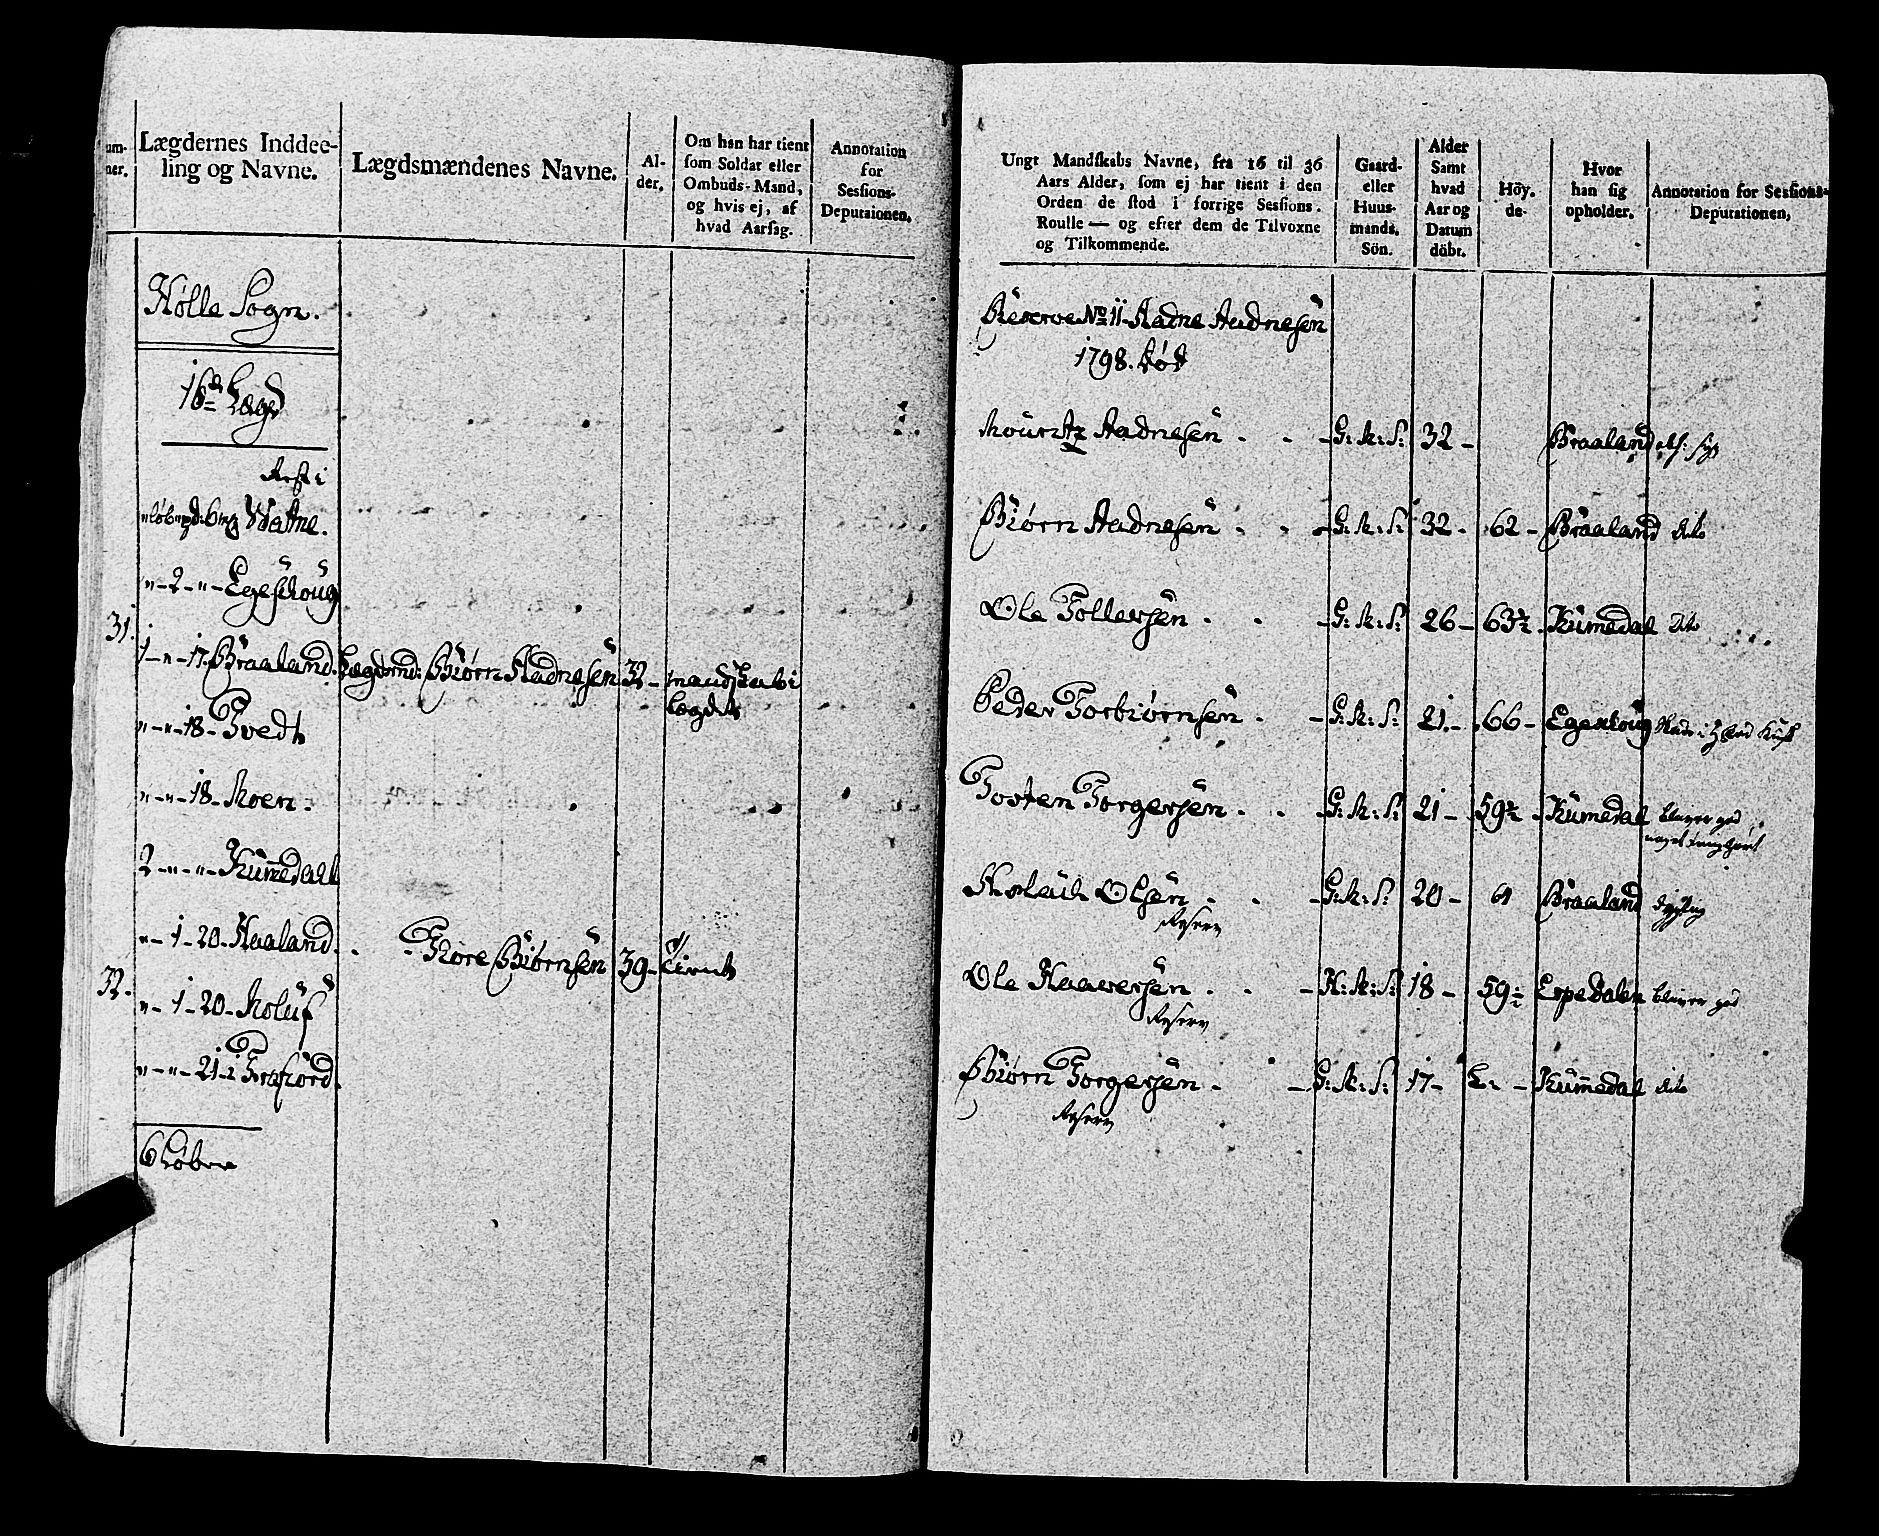 um-
ner.
Lægdernes Inddee-
ling og Navne.
Lægdsmændenes Navne.
Al-
der.
Om han har tient
som Soldat eller
Ombuds-Mand,
og hvis ej, af
hvad Aarsag.
Annotation
for
Sessions-
Deputaionen.
Hølle Sogn.
16de Lægd
Rest i
6 Watne.
" - 2 - " - Egeskoug
31.
1 - " - 17. Braaland. Lægdsmd: Biørn Aadnesen 32 - mandskab i
Lægdet
" - " - 18 - Tvedt
" - " - 18 - Moen.
2 - " - " - Kummedall
" - 1 - 20 - Haaland. Tore Biørnsen 39 - tient
32.
" - 1 - 20 - Moluf
" - " - 21 - i Frafiord.
6 Løber
Ungt Mandskabs Navne, fra 16 til 36
Aars Alder, som ej har tient i den
Orden de stod i forrige Sessions.
Roulle — og efter dem de Tilvoxne
og Tilkommende.
Gaard-
eller
Huus-
mands.
Sön.
Alder
Samt
hvad
Aar og
Datum
döbt.
Höy.
de-
Hvor
han sig
opholder.
Annotation for Sessions-
Deputationen.
Reserve No 11 - Aadne Aadnesen
1798. død
Mouritz Aadnesen - G: M: S: 32 - Braaland
Biørn Aadnesen - G: M: S: 32 - 62 - Braaland dito
Ole Tollevsen - G: M: S: 26 - 63½ - Kumedal dito
Peder Torbiørnsen - G: M: S: 21 - 66 - Egeskoug
Tosten Torgersen - G: M: S: 21 - 59½ - Kumedal bliver god
noget tunghørt
Olsen - G: M: S: 20 - 61 Braaland dygtig
Reserv
Ole Haaversen - H: M: S: 18 - 59½ Espedalen bliver god
Reserv
Biørn Torgersen - G: M: S: 17 - L: - Kummedal dito
Reserv